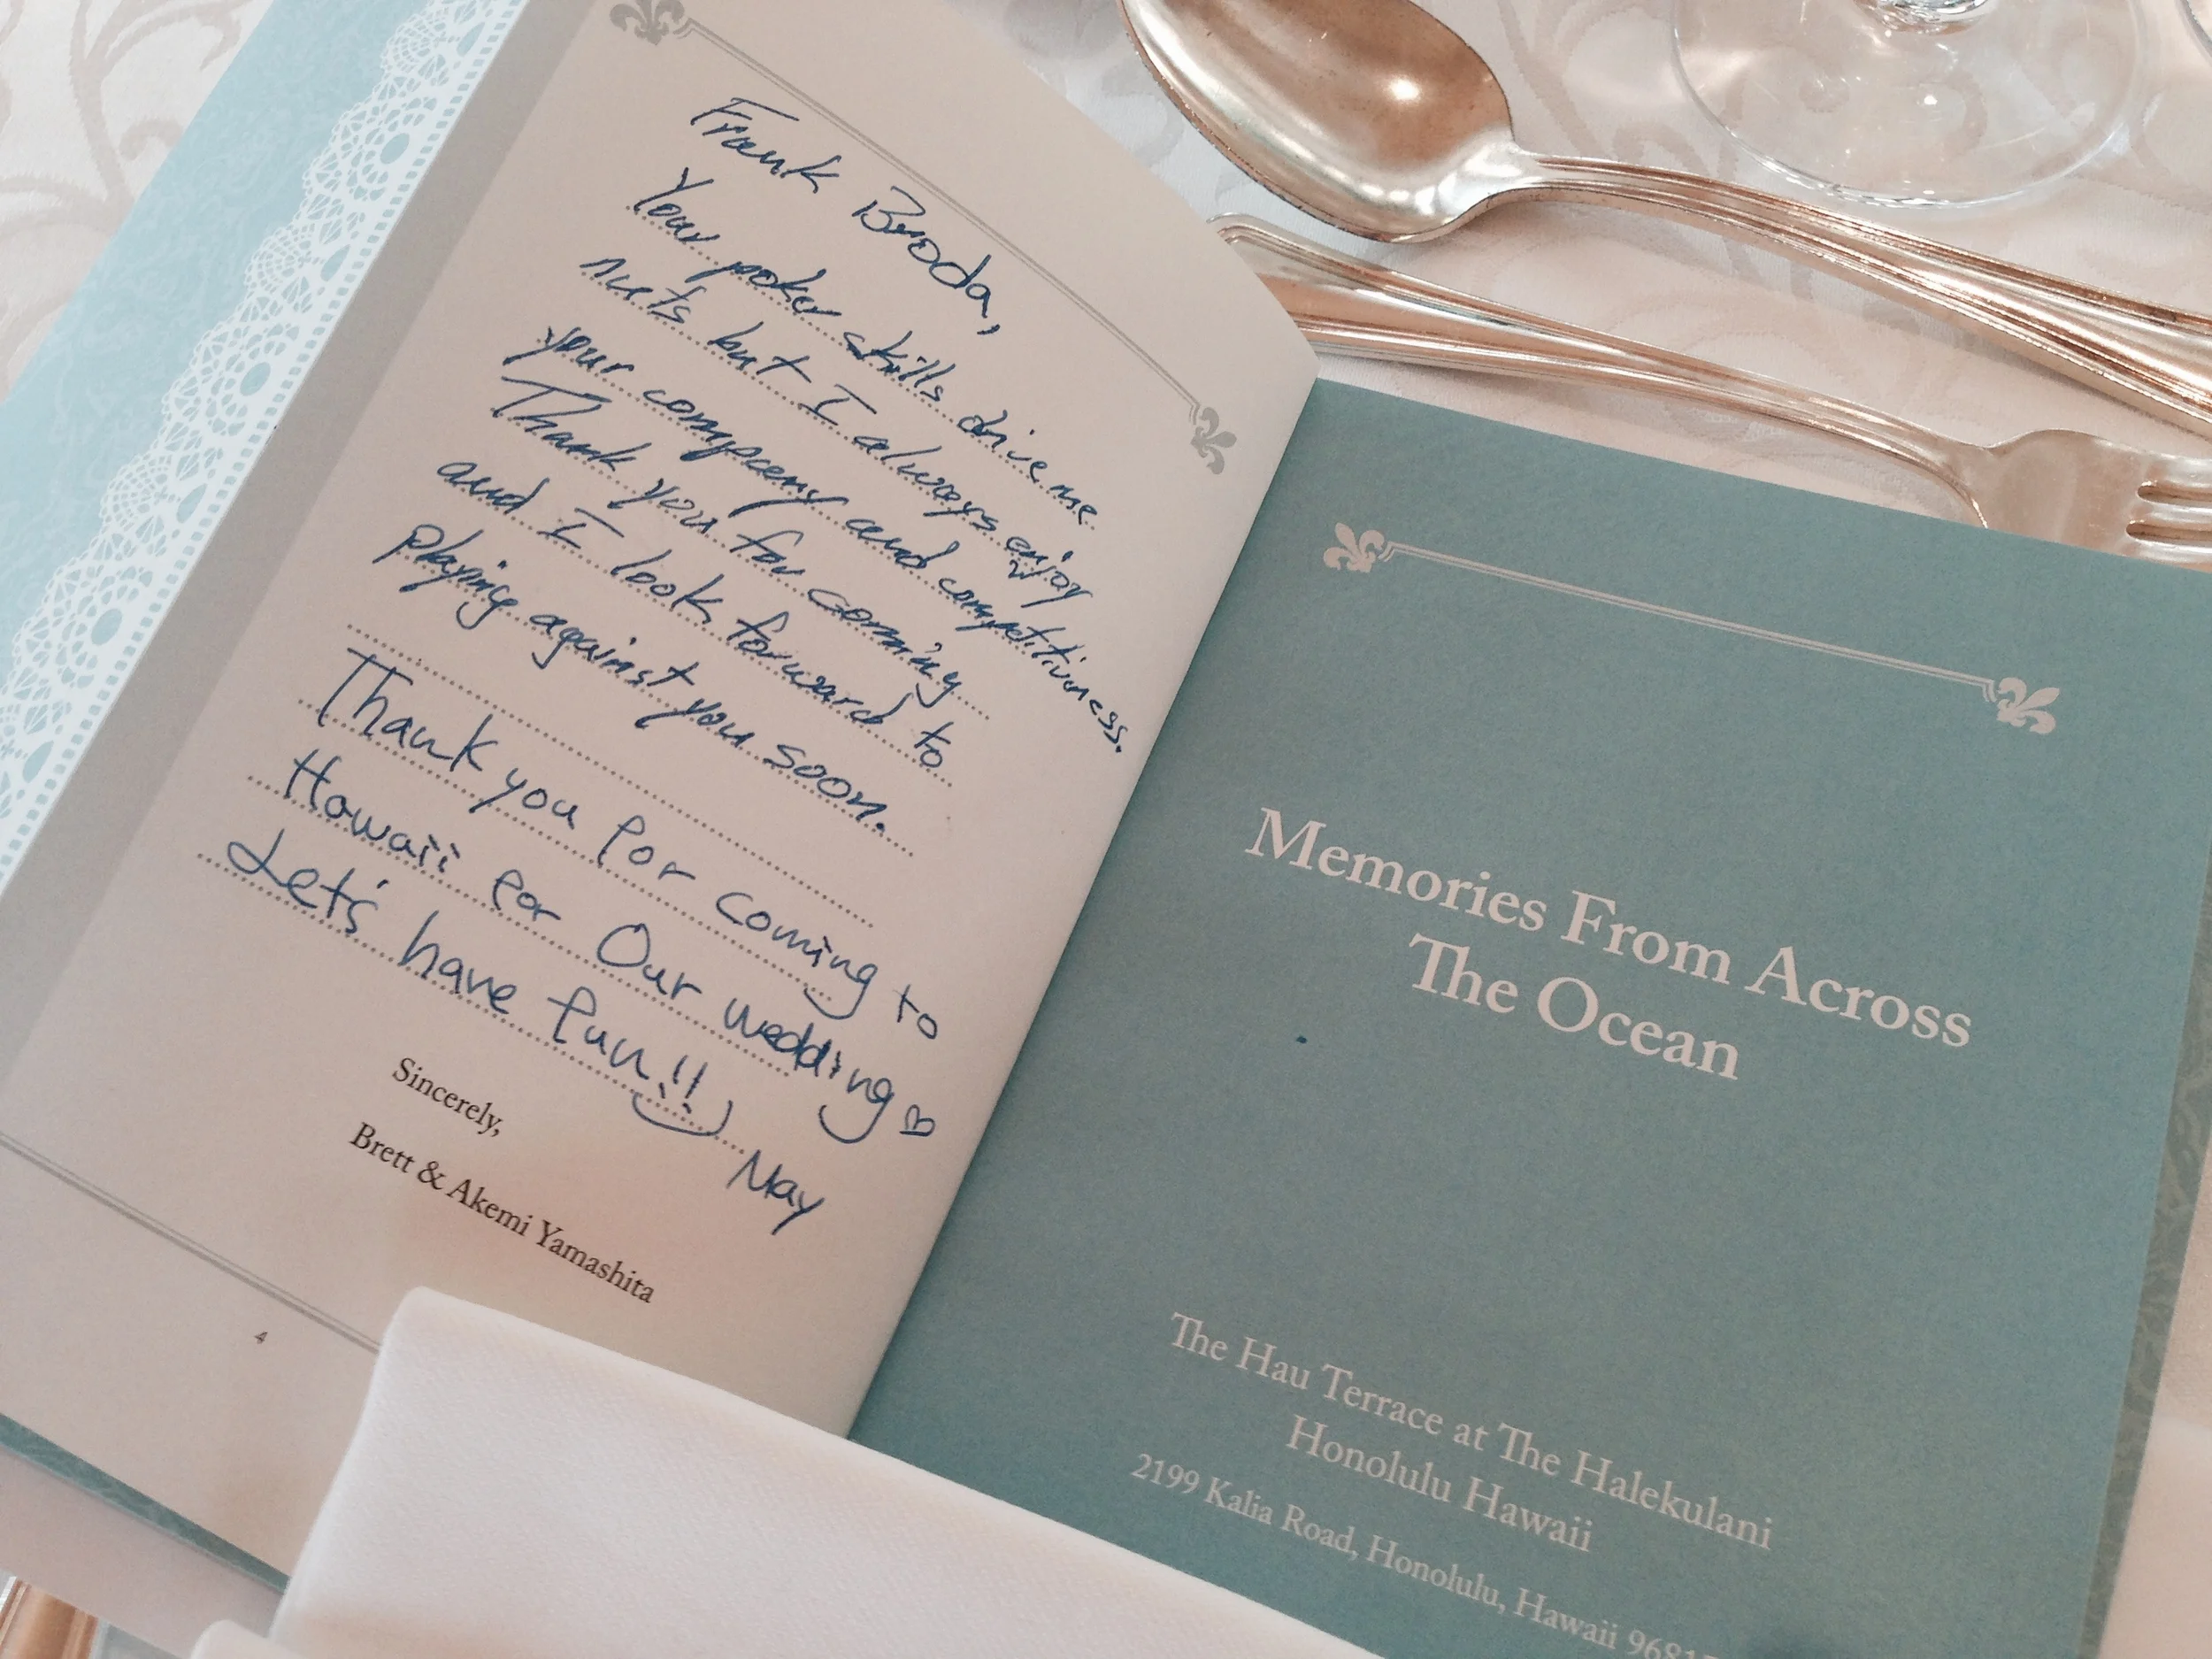 Frank Broda,
Your poker skills drive me
nuts but I always enjoy
your company and competitiveness.
Thank you for coming
and I look forward to
playing against you soon.
Thank you for coming to
Hawaii for Our wedding ♡
Let's have fun!!
May
Sincerely,
Brett & Akemi Yamashita
4
Memories From Across
The Ocean
The Hau Terrace at The Halekulani
Honolulu Hawaii
2199 Kalia Road, Honolulu, Hawaii 96815